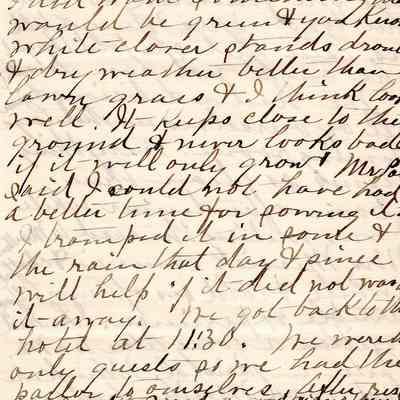 would be green & you know
white clover stands drou
& dry weather better than
lawn grass & I think loo
well. It keeps close to the
ground & never looks bad
if it will only grow. Mr. Pa
said I could not have had
a better time for sowing it.
I tramped it in some &
the rain that day & since
will help if it did not was
it away. We got back to th
hotel at 11:30. We were
only guests so we had the
parlor to ourselves. After res